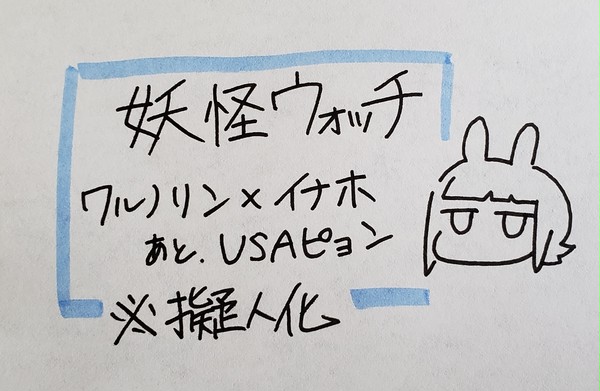 妖怪ウォッチ
ワルノリン×イナホ
あと、USAピョン
※擬人化